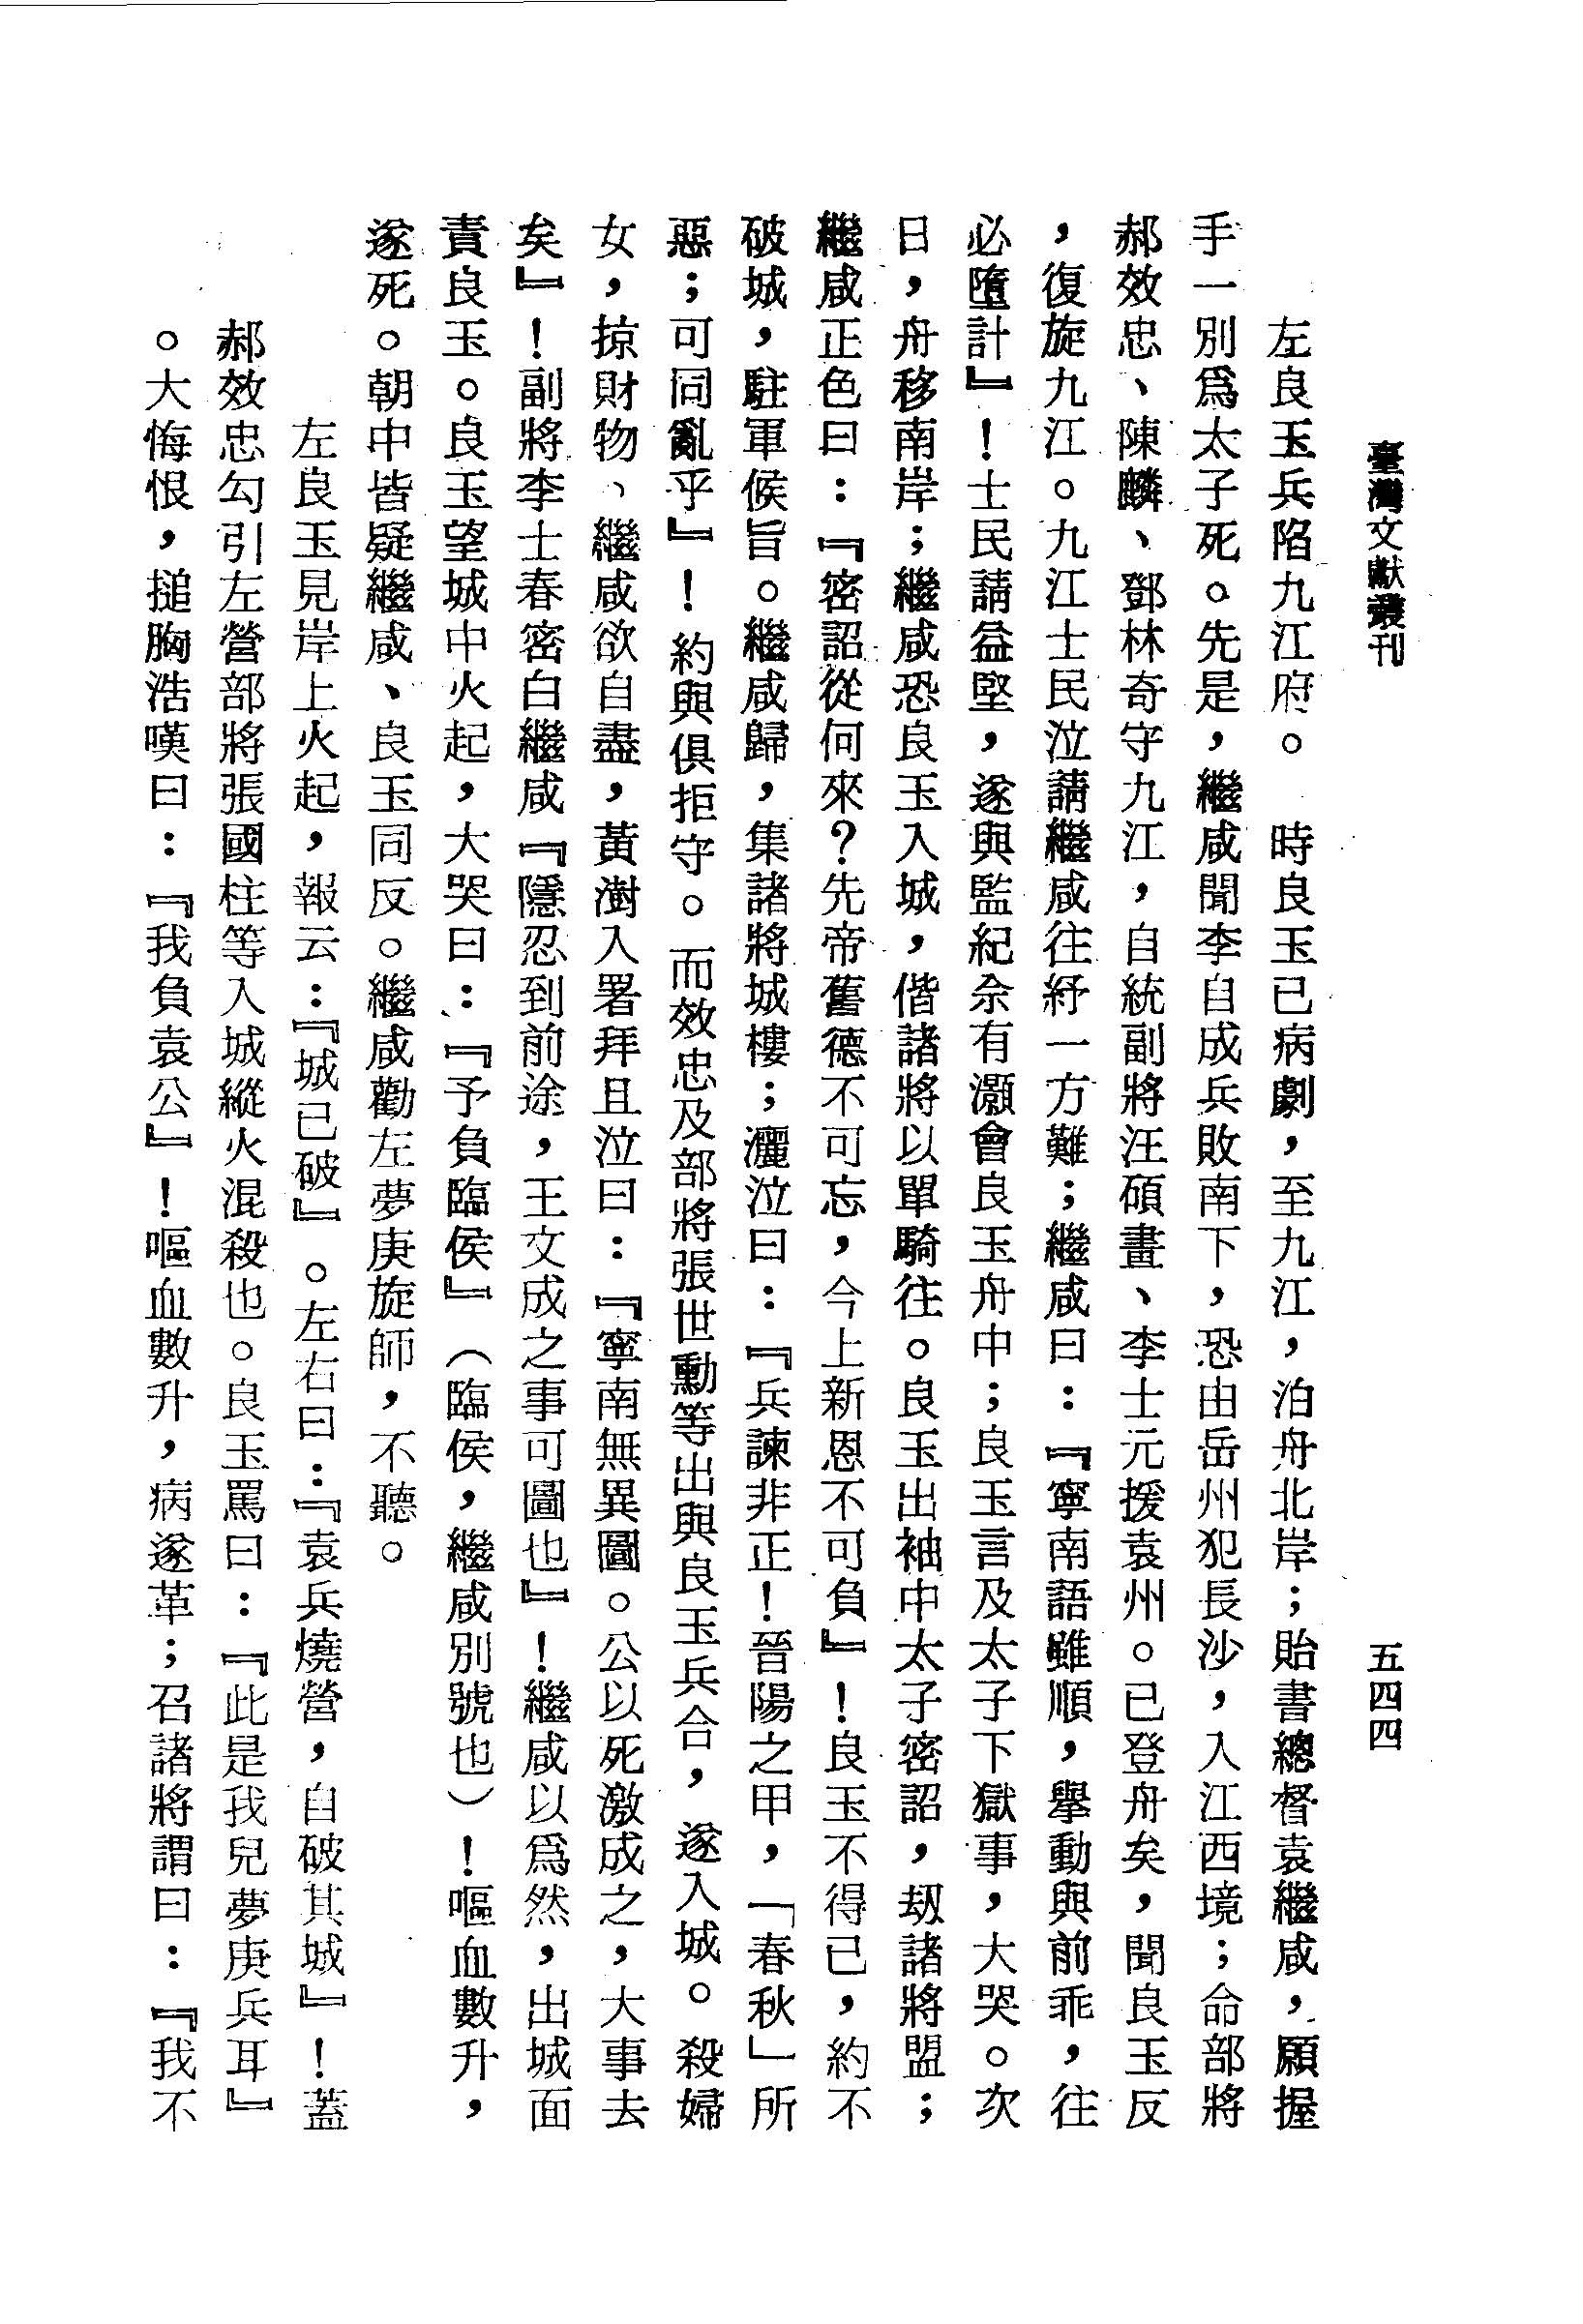 臺灣文獻叢刊
五四四
左良玉兵陷九江府。　時良玉已病劇，至九江，泊舟北岸；貽書總督袁繼咸，願握
手一別爲太子死。先是，繼咸聞李自成兵敗南下，恐由岳州犯長沙，入江西境；命部將
郝效忠、陳麟、鄧林奇守九江，自統副將汪碩畫、李士元援袁州。已登舟矣，聞良玉反
，復旋九江。九江士民泣請繼咸往紓一方難；繼咸曰：『寧南語雖順，舉動與前乖，往
必墮計』！士民請益堅，遂與監紀余有灝會良玉舟中；良玉言及太子下獄事，大哭。次
日，舟移南岸；繼咸恐良玉入城，偕諸將以單騎往。良玉出袖中太子密詔，刼諸將盟；
繼咸正色曰：『密詔從何來？先帝舊德不可忘，今上新恩不可負』！良玉不得已，約不
破城，駐軍候旨。繼咸歸，集諸將城樓；灑泣曰：『兵諫非正！晉陽之甲，「春秋」所
惡；可同亂乎』！約與俱拒守。而效忠及部將張世勳等出與良玉兵合，遂入城。殺婦
女，掠財物、繼咸欲自盡，黃澍入署拜且泣曰：『寧南無異圖。公以死激成之，大事去
矣』！副將李士春密白繼咸『隱忍到前途，王文成之事可圖也』！繼咸以爲然，出城面
責良玉。良玉望城中火起，大哭曰：『予負臨侯』（臨侯，繼咸別號也）！嘔血數升，
遂死。朝中皆疑繼咸、良玉同反。繼咸勸左夢庚旋師，不聽。
左良玉見岸上火起，報云：『城已破』。左右曰：『袁兵燒營，自破其城』！蓋
郝效忠勾引左營部將張國柱等入城縱火混殺也。良玉罵曰：『此是我兒夢庚兵耳』
。大悔恨，搥胸浩嘆曰：『我負袁公』！嘔血數升，病遂革；召諸將謂曰：『我不